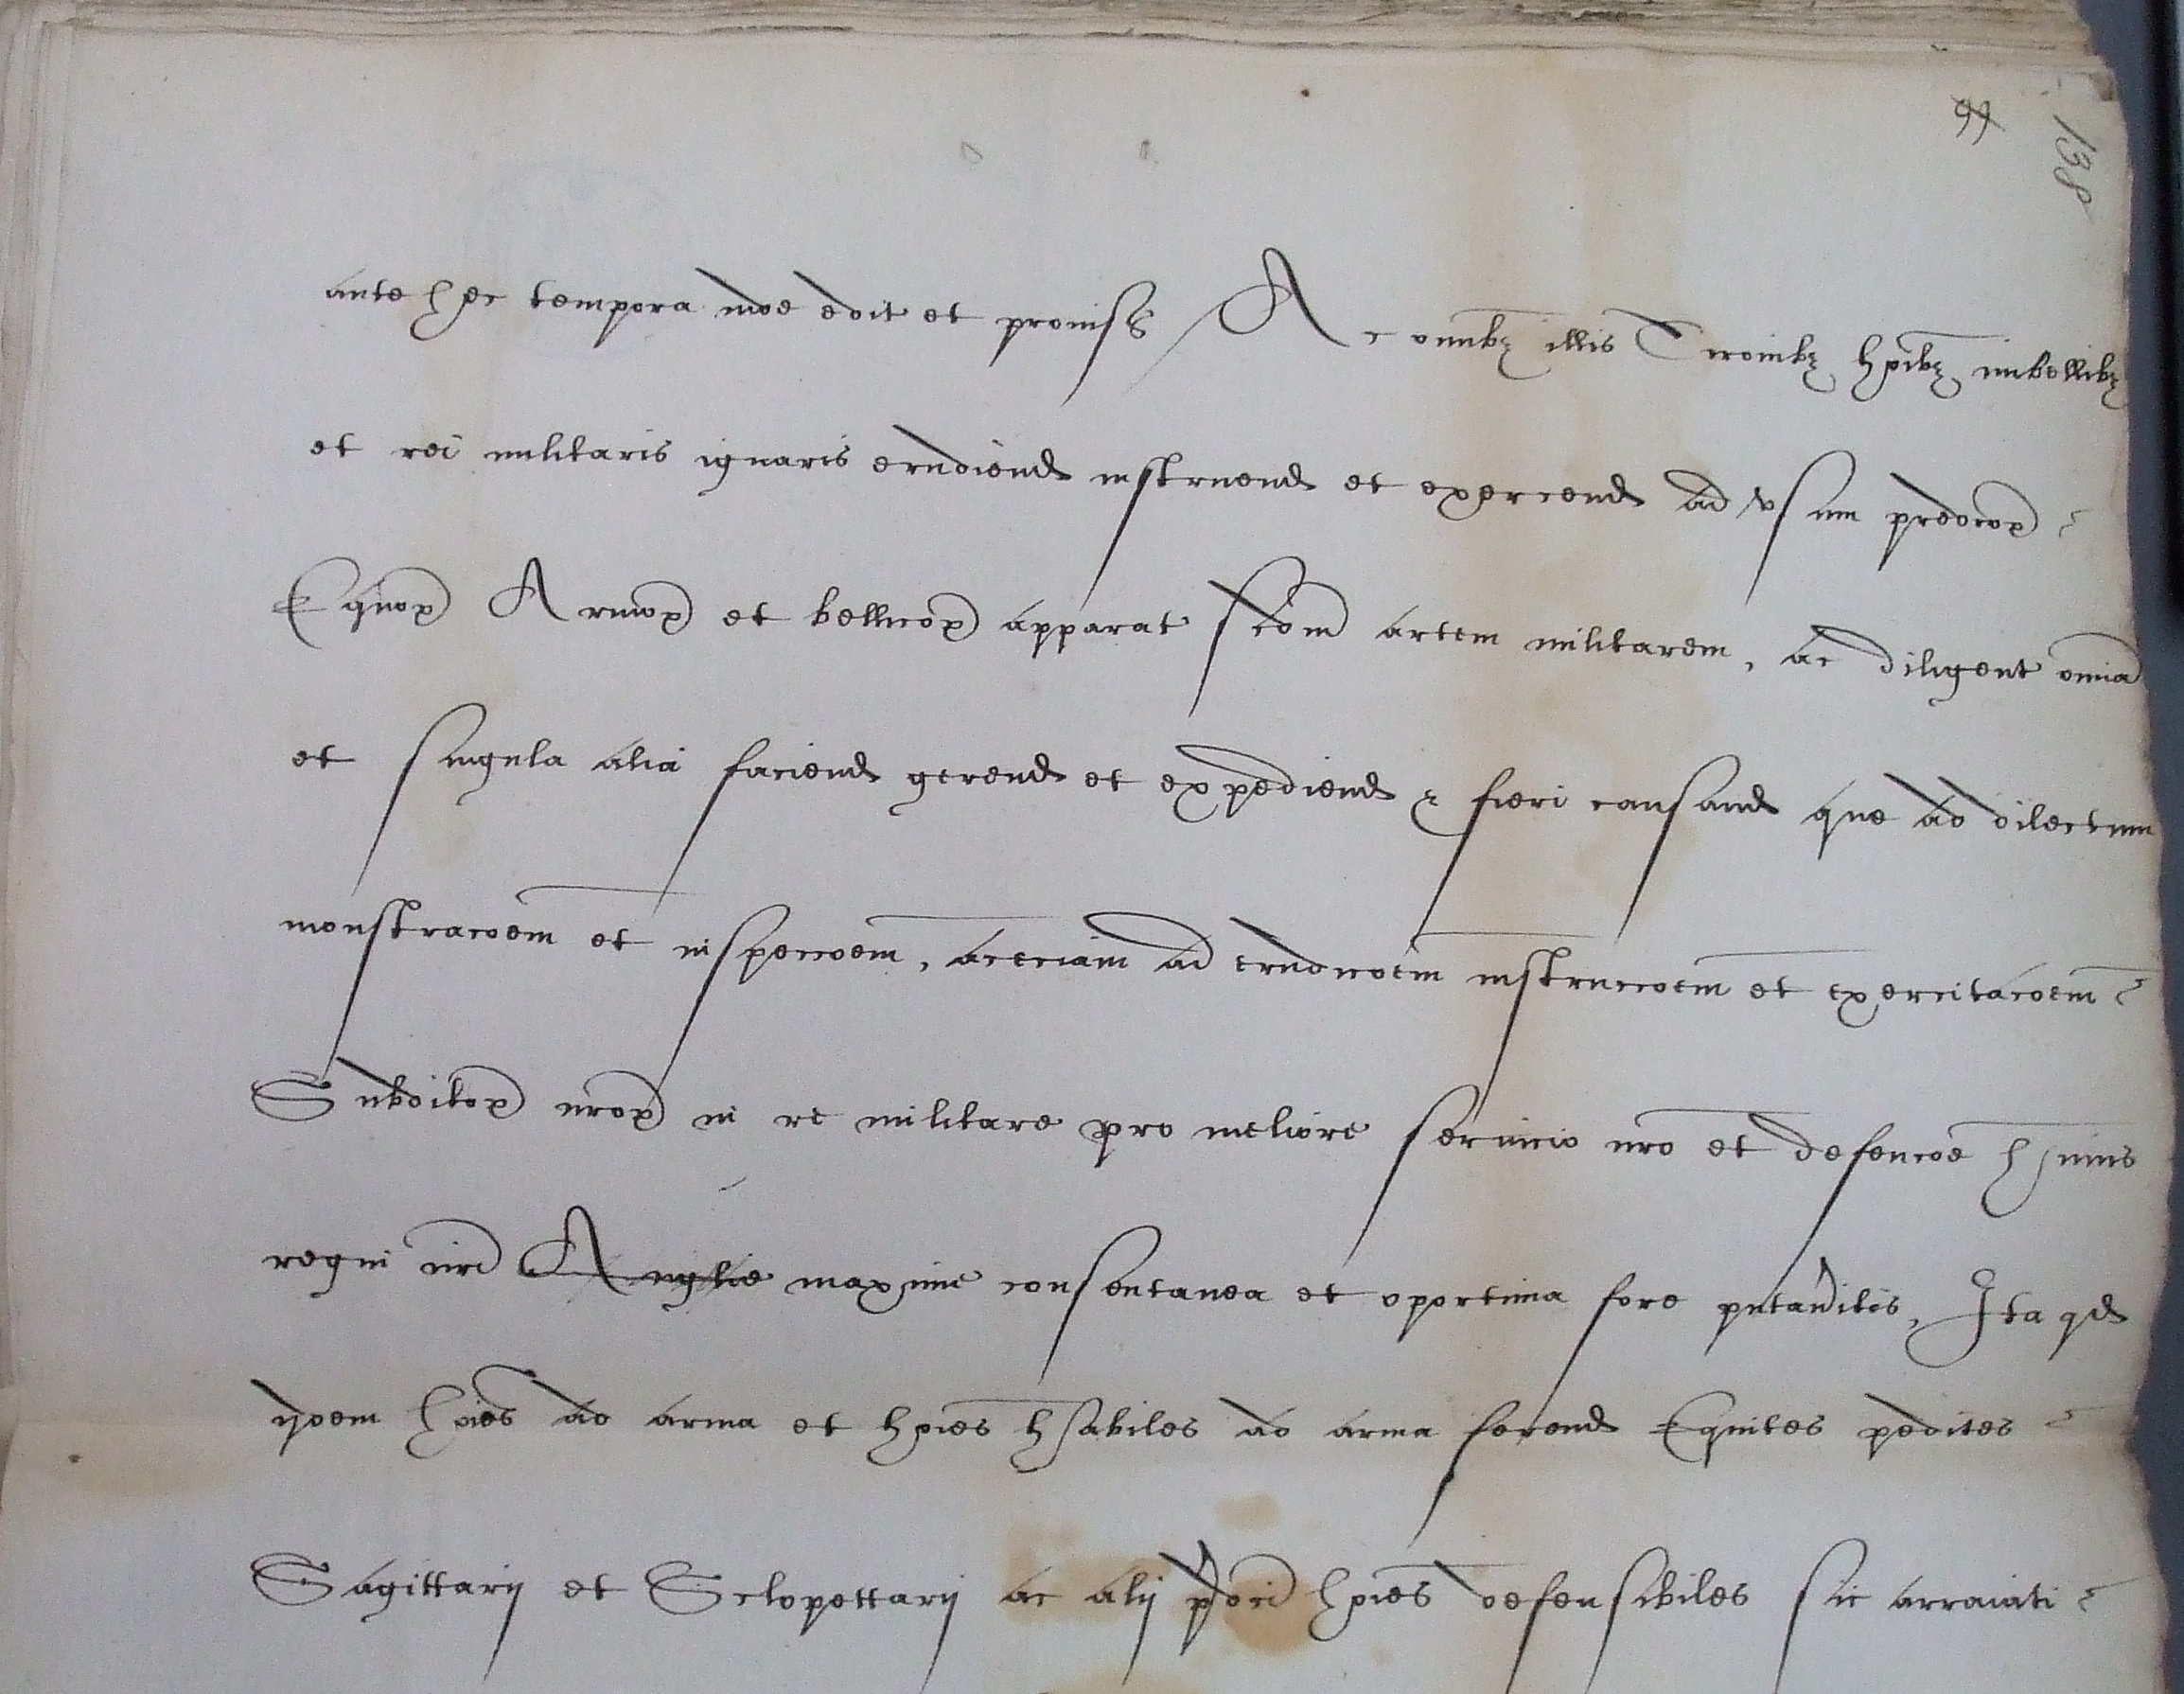 99
138
ante hec tempora inde edit et provis Ac omnibȝ illis Tironibȝ hoĩbȝ imbellibȝ
et rei militaris ignaris erudiend instruend et exercend ad vsum predcoꝝ
Equoꝝ Armoꝝ et bellicoꝝ apparat scdm artem militarem, ac diligent omia
et singula alia faciend gerend et expediend & fieri causand que ad dilectum
monstracoem et inspeccoem, aceciam ad erudicoem instruccoem et exercitacoem
Subditoꝝ nroꝝ in re militare pro meliore servicio nro et defencoe huius
regni nri Anglie maxime consentanea et oportuna fore putaveritis, Ita qd
ijdem hoies ad arma et hoies habiles ad arma ferend Equites pedites
Sagittarij et Sclopettarij ac alij pdci hoies defensibiles sic arraiati